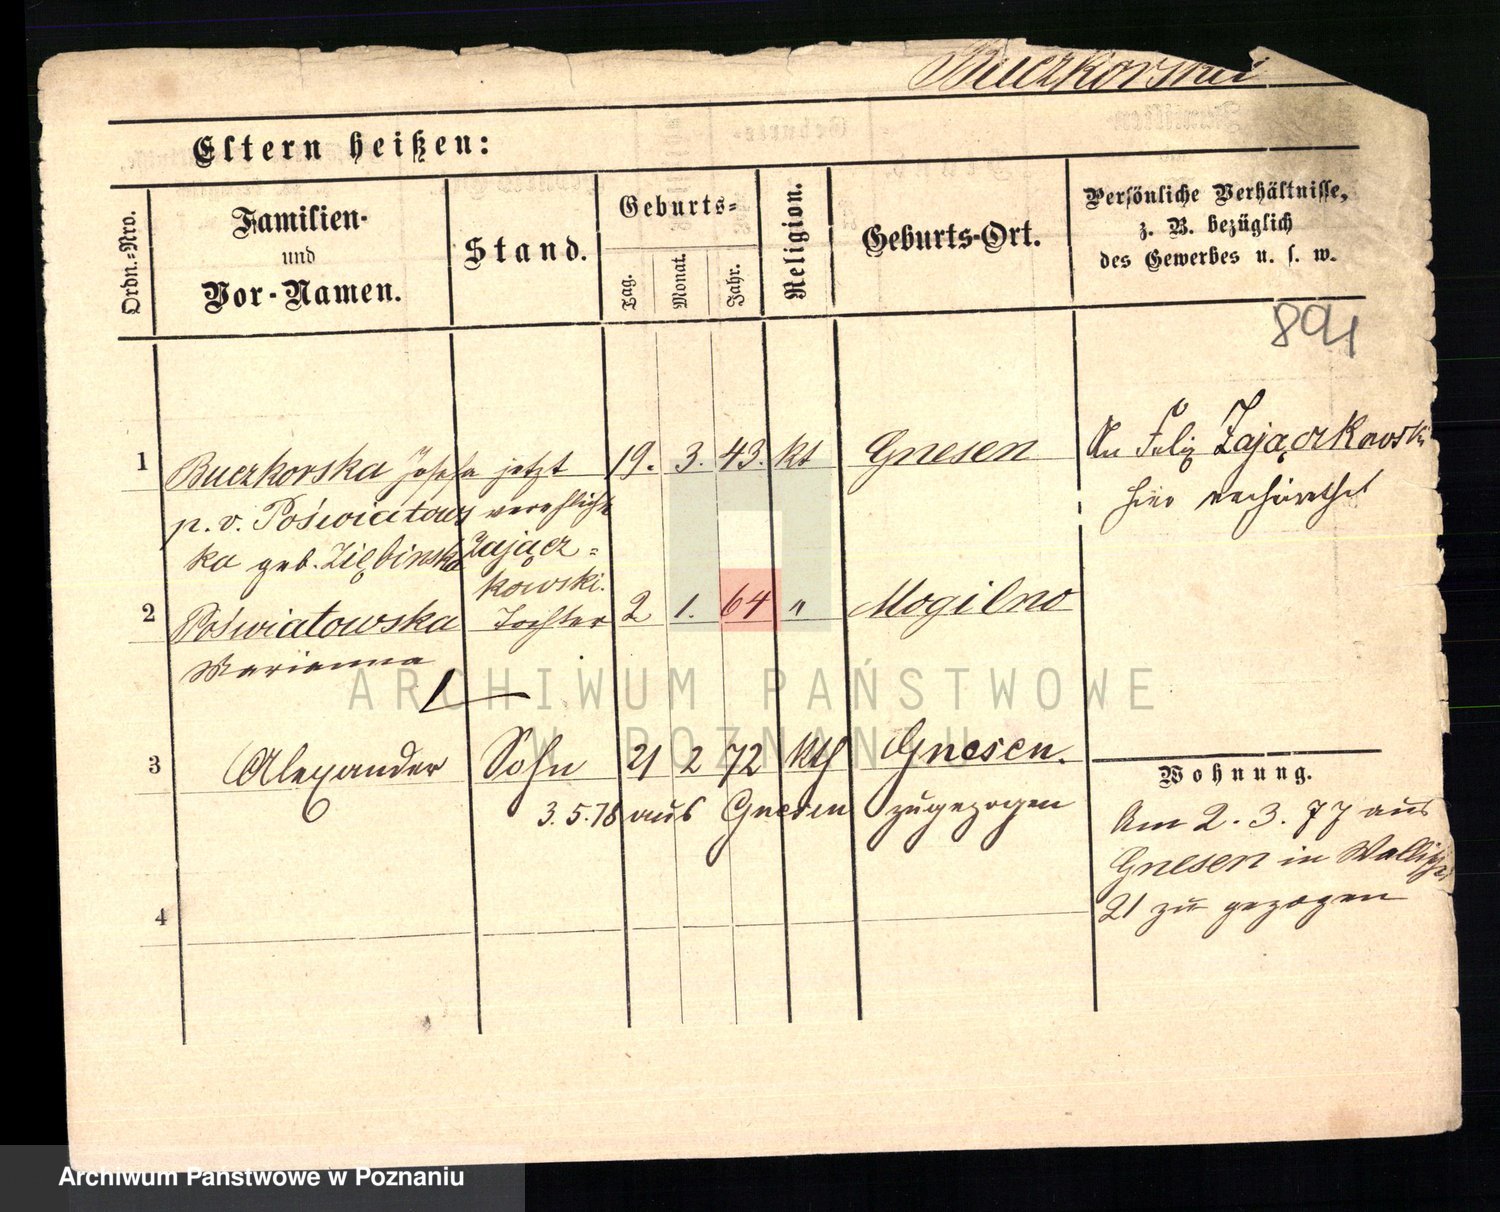 Buczkorska
Eltern heißen:
Ordn.-Nro.
Familien-
und
Vor-Namen.
Stand.
Geburts-
Tag.
Monat.
Jahr.
Religion.
Geburts-Ort.
Persönliche Verhältnisse,
z. B. bezüglich
des Gewerbes u. s. w.
894
1 Buczkorska Josefa jetzt 19. 3. 43. kt Gnesen An Felix Zajączkowski
p. v. Poświatows verehlicht hier verheirathet
ka geb. Ziębinska Zającz=
kowski.
2 Poświatowska Tochter 2 1. 64 " Mogilno
Marianna
3 Alexander Sohn 21 2 72 kth Gnesen.
3.5.78 aus Gnesen zugezogen
Wohnung.
Am 2. 3. 77 aus
Gnesen in Wallischei
21 zu gezogen
4
ARCHIWUM PAŃSTWOWE
W POZNANIU
Archiwum Państwowe w Poznaniu